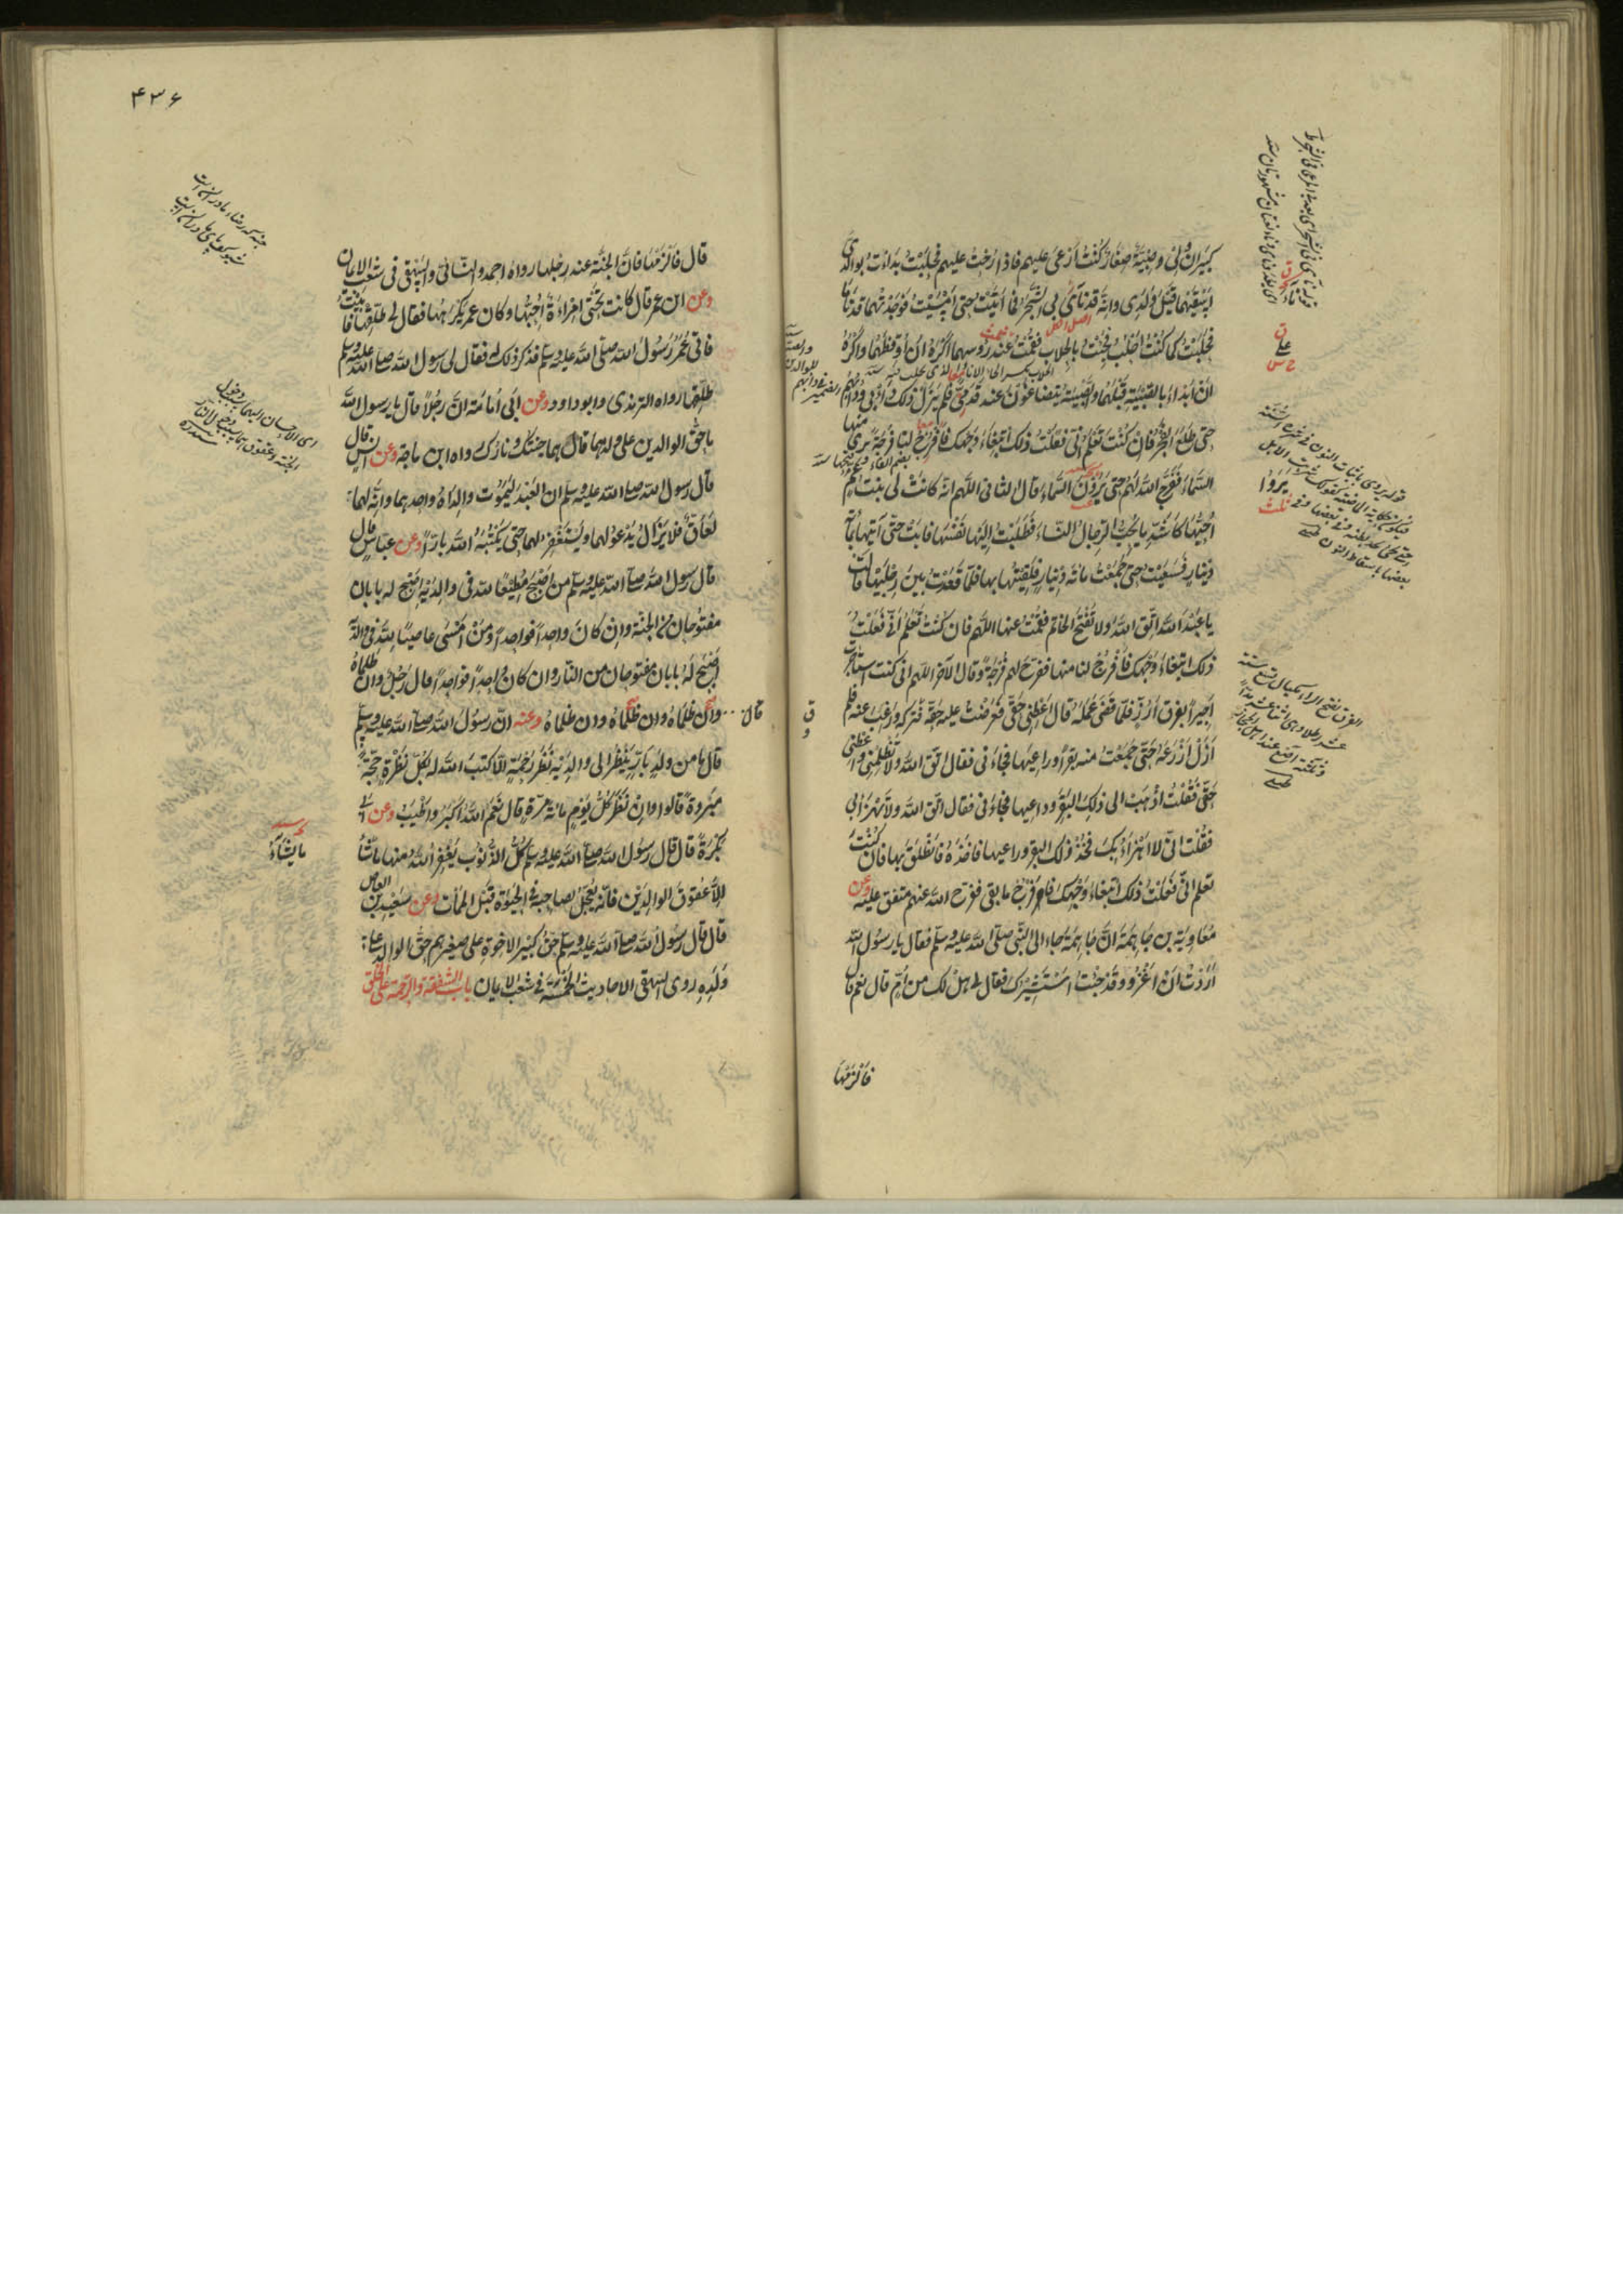 كبيران ولي صبية صغار كنت أرعى عليهم فاذا رحت عليهم فحلبت بدأت بوالدي
اسقيهما قبل ولدي وانه قد نأى بي الشجر فما اتيت حتى امسيت فوجدتهما قد ناما
فحلبت كما كنت احلب فجئت بالحلاب فقمت عند رؤسهما اكره ان أوقظهما واكره
ان ابدأ بالصبية قبلهما والصبية يتضاغون عند قدمي فلم يزل ذلك دأبي ودأبهم
حتى طلع الفجر فان كنت تعلم اني فعلت ذلك ابتغاء وجهك فافرج لنا فرجة نرى منها
السماء ففرج الله لهم حتى يرون السماء قال الثاني اللهم انه كانت لي بنت عم
احبها كاشد ما يحب الرجال النساء فطلبت اليها نفسها فابت حتى آتيها بمائة
دينار فسعيت حتى جمعت مائة دينار فلقيتها بها فلما قعدت بين رجليها قالت
يا عبد الله اتق الله ولا تفتح الخاتم فقمت عنها اللهم فان كنت تعلم اني فعلت
ذلك ابتغاء وجهك فافرج لنا منها ففرج لهم فرجة وقال الآخر اللهم اني كنت استأجرت
اجيرا بفرق ارز فلما قضى عمله قال اعطني حقي فعرضت عليه حقه فتركه ورغب عنه فلم
ازل ازرعه حتى جمعت منه بقرا وراعيها فجاءني فقال اتق الله ولا تظلمني واعطني
حقي فقلت اذهب الى ذلك البقر وراعيها فجاءني فقال اتق الله ولا تهزأ بي
فقلت اني لا اهزأ بك فخذ ذلك البقر وراعيها فاخذه فانطلق بها فان كنت
تعلم اني فعلت ذلك ابتغاء وجهك فافرج ما بقي ففرج الله عنهم متفق عليه وعن
معاوية بن جاهمة ان جاهمة جاء الى النبي صلى الله عليه وسلم فقال يا رسول الله
اردت ان اغزو وقد جئت استشيرك فقال هل لك من ام قال نعم قال
فالزمها
۴۳۶
قال فالزمها فان الجنة عند رجلها رواه احمد والنسائي والبيهقي في شعب الايمان
وعن ابن عمر قال كانت تحتي امرأة احبها وكان عمر يكرهها فقال لي طلقها فابيت
فاتى عمر رسول الله صلى الله عليه وسلم فذكر ذلك له فقال لي رسول الله صلى الله عليه وسلم
طلقها رواه الترمذي وابو داود وعن ابي أمامة ان رجلا قال يا رسول الله
ما حق الوالدين على ولدهما قال هما جنتك ونارك رواه ابن ماجة وعن انس قال
قال رسول الله صلى الله عليه وسلم ان العبد ليموت والداه او احدهما وانه لهما
لعاق فلا يزال يدعو لهما ويستغفر لهما حتى يكتبه الله بارا وعن ابن عباس قال
قال رسول الله صلى الله عليه وسلم من اصبح مطيعا لله في والديه اصبح له بابان
مفتوحان من الجنة وان كان واحدا فواحدا ومن امسى عاصيا لله في والديه
اصبح له بابان مفتوحان من النار وان كان واحدا فواحدا قال رجل وان ظلماه
قال وان ظلماه وان ظلماه وان ظلماه وعنه ان رسول الله صلى الله عليه وسلم
قال ما من ولد بار ينظر الى والديه نظر رحمة الا كتب الله له بكل نظرة حجة
مبرورة قالوا وان نظر كل يوم مائة مرة قال نعم الله اكبر واطيب وعن ابي
بكرة قال قال رسول الله صلى الله عليه وسلم كل الذنوب يغفر الله منها ما شاء
الا عقوق الوالدين فانه يعجل لصاحبه في الحيوة قبل الممات وعن سعيد بن العاص
قال قال رسول الله صلى الله عليه وسلم حق كبير الاخوة على صغيرهم حق الوالد على
ولده روى البيهقي الاحاديث الخمسة في شعب الايمان باب الشفقة والرحمة على الخلق
ما يشاء